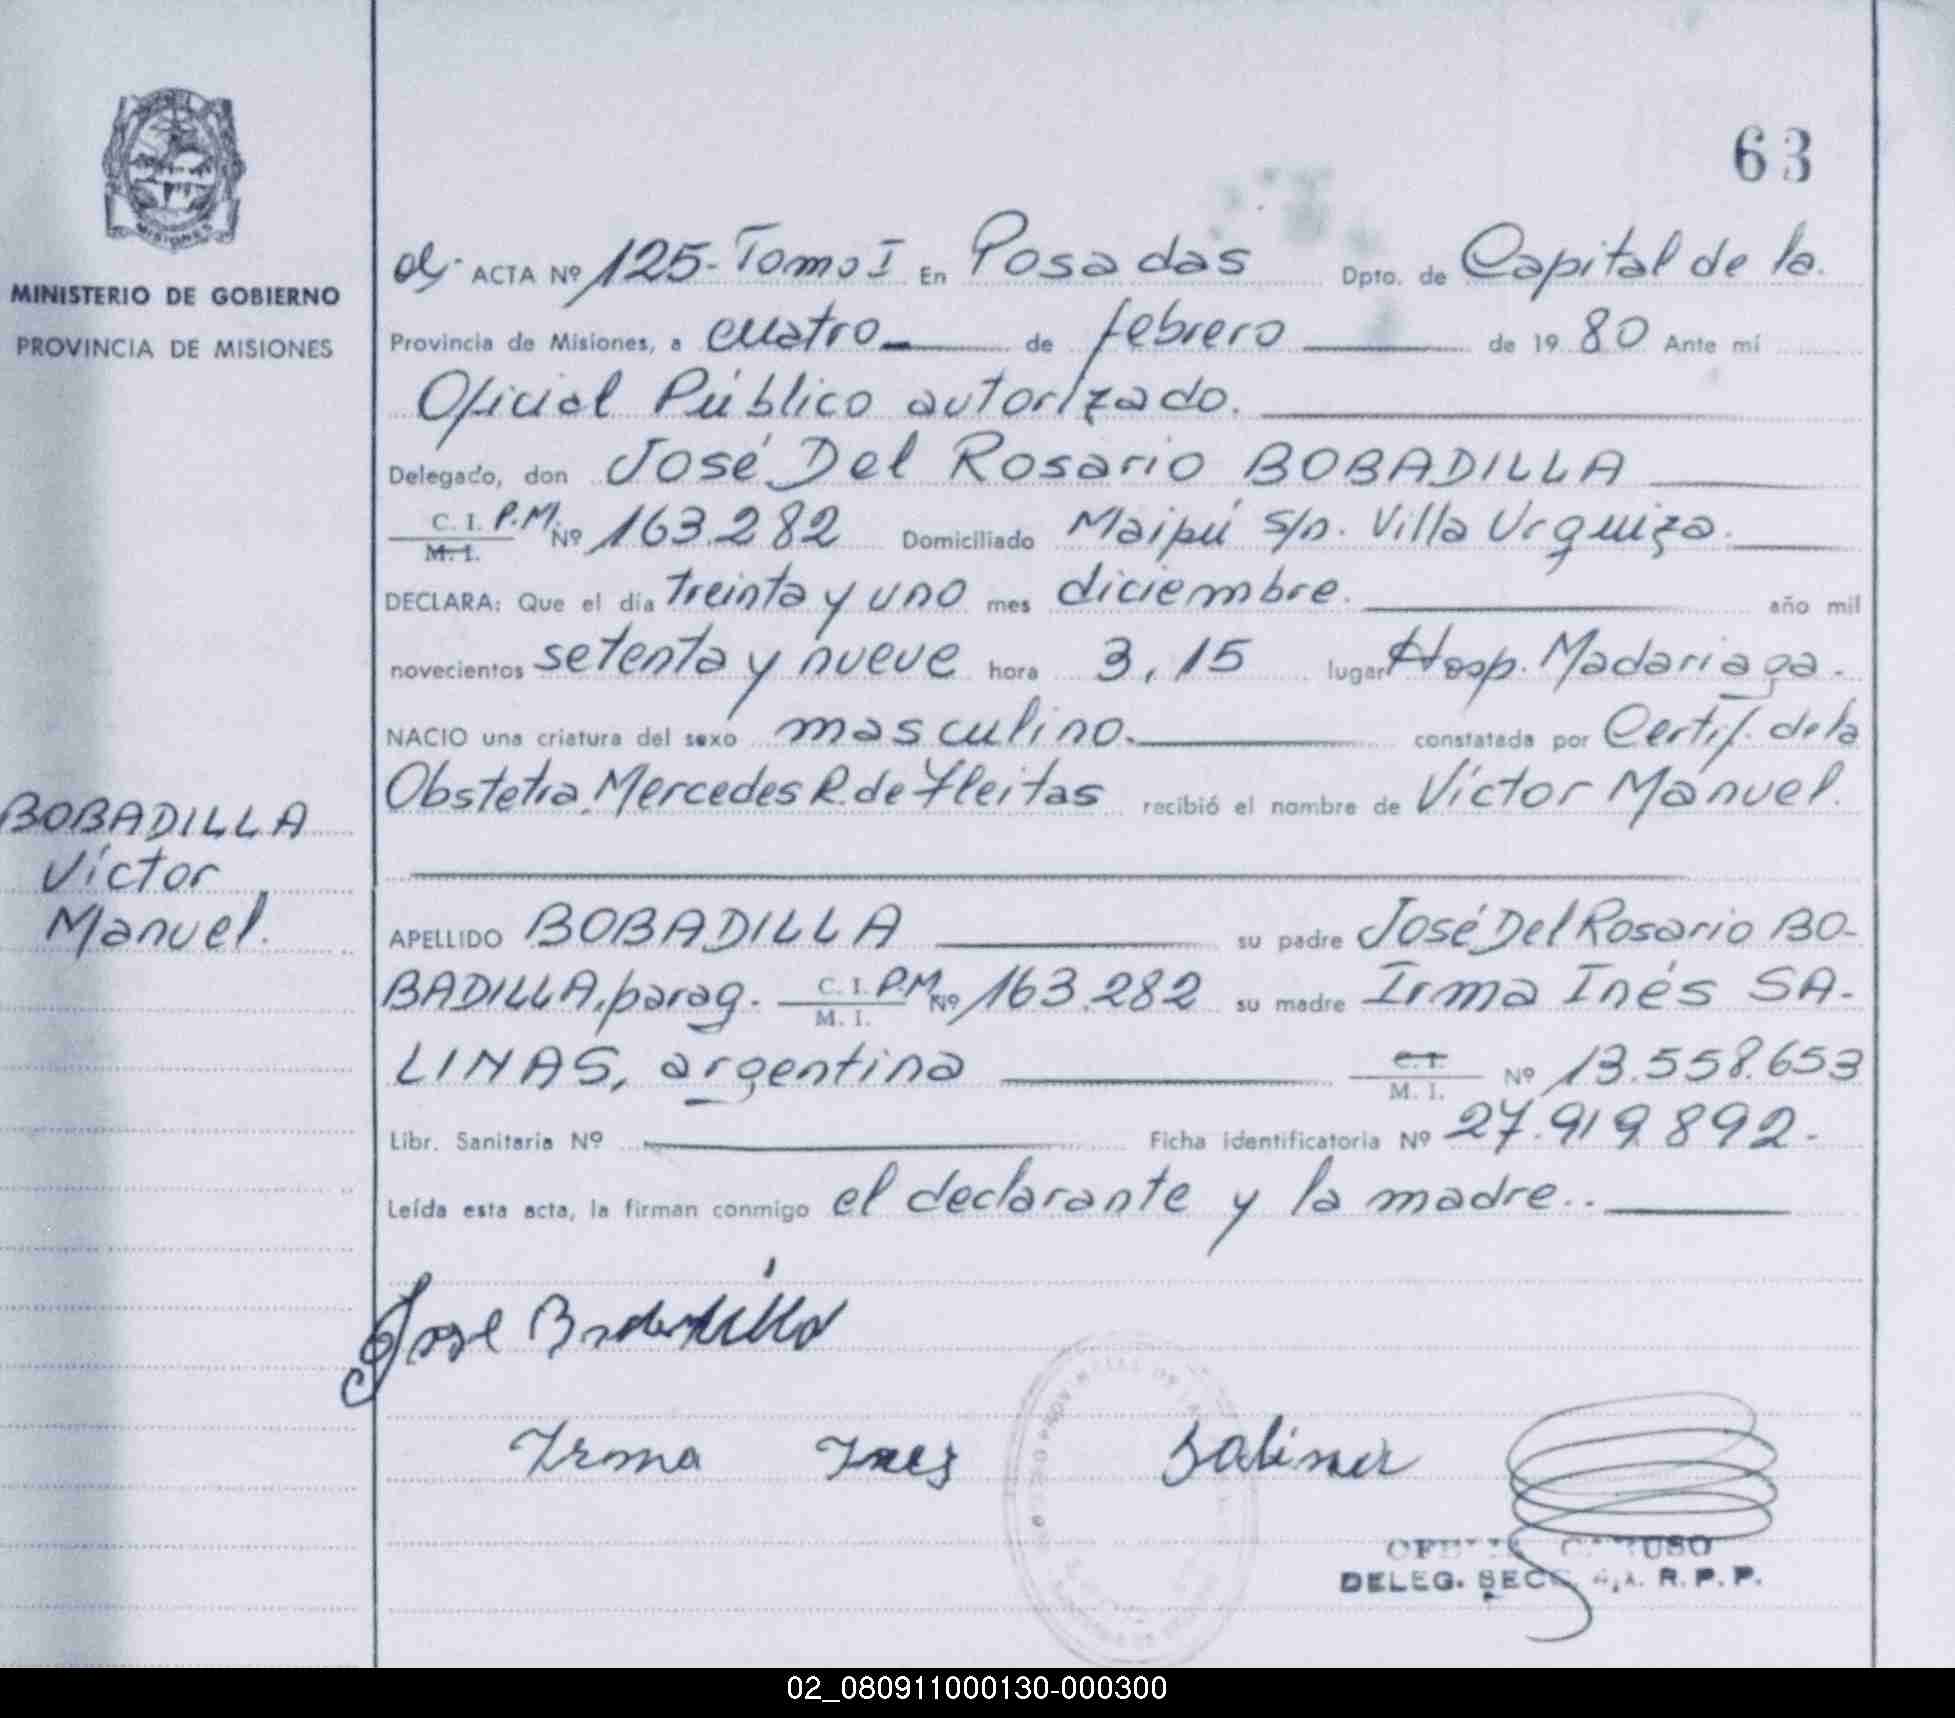 63
MISIONES
MINISTERIO DE GOBIERNO
PROVINCIA DE MISIONES
BOBADILLA
Víctor
Manuel.
ACTA Nº 125- Tomo I En Posadas Dpto. de Capital de la
Provincia de Misiones, a cuatro de febrero de 19 80 Ante mí
Oficial Público autorizado.
Delegado, don José Del Rosario BOBADILLA
C. I. P.M. Nº 163.282 Domiciliado Maipú s/n. Villa Urquiza.
M. I.
DECLARA: Que el día treinta y uno mes diciembre. año mil
novecientos setenta y nueve hora 3,15 lugar Hosp. Madariaga.
NACIO una criatura del sexo masculino. constatada por Certif. de la
Obstetra. Mercedes R. de Fleitas recibió el nombre de Víctor Manuel.
APELLIDO BOBADILLA su padre José Del Rosario BO-
BADILLA, parag. C. I. P.M. Nº 163.282 su madre Irma Inés SA-
M. I.
LINAS, argentina C. I. Nº 13.558.653
M. I.
Libr. Sanitaria Nº Ficha identificatoria Nº 27.919.892.-
Leída esta acta, la firman conmigo el declarante y la madre..
Jose Bobadilla
Irma Ines Salinas
DELEG. R. P. P.
02_080911000130-000300